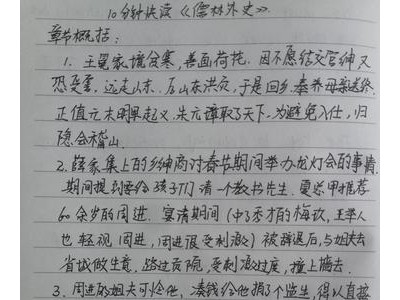 10分钟快读《儒林外史》.
章节概括：
1. 王冕家境贫寒，善画荷花. 因不愿结交官绅又
恐受害，远走山东. 后山东洪灾，于是回乡. 奉养母亲送终
正值元末明早起义，朱元璋取了天下. 为避免入仕，归
隐会稽山.
2. 薛家集上的乡绅商讨春节期间举办龙灯会的事情.
期间提到要给孩子们请一个教书先生. 夏总甲推荐
60余岁的周进. 宴请期间（中了秀才的梅玖，王举人
也轻视周进，周进很受刺激）被辞退后，与姐夫去
省城做生意. 路过贡院，受刺激过度，撞上墙去.
3. 周进的姐夫可怜他，凑钱给他捐了个监生，得以直接